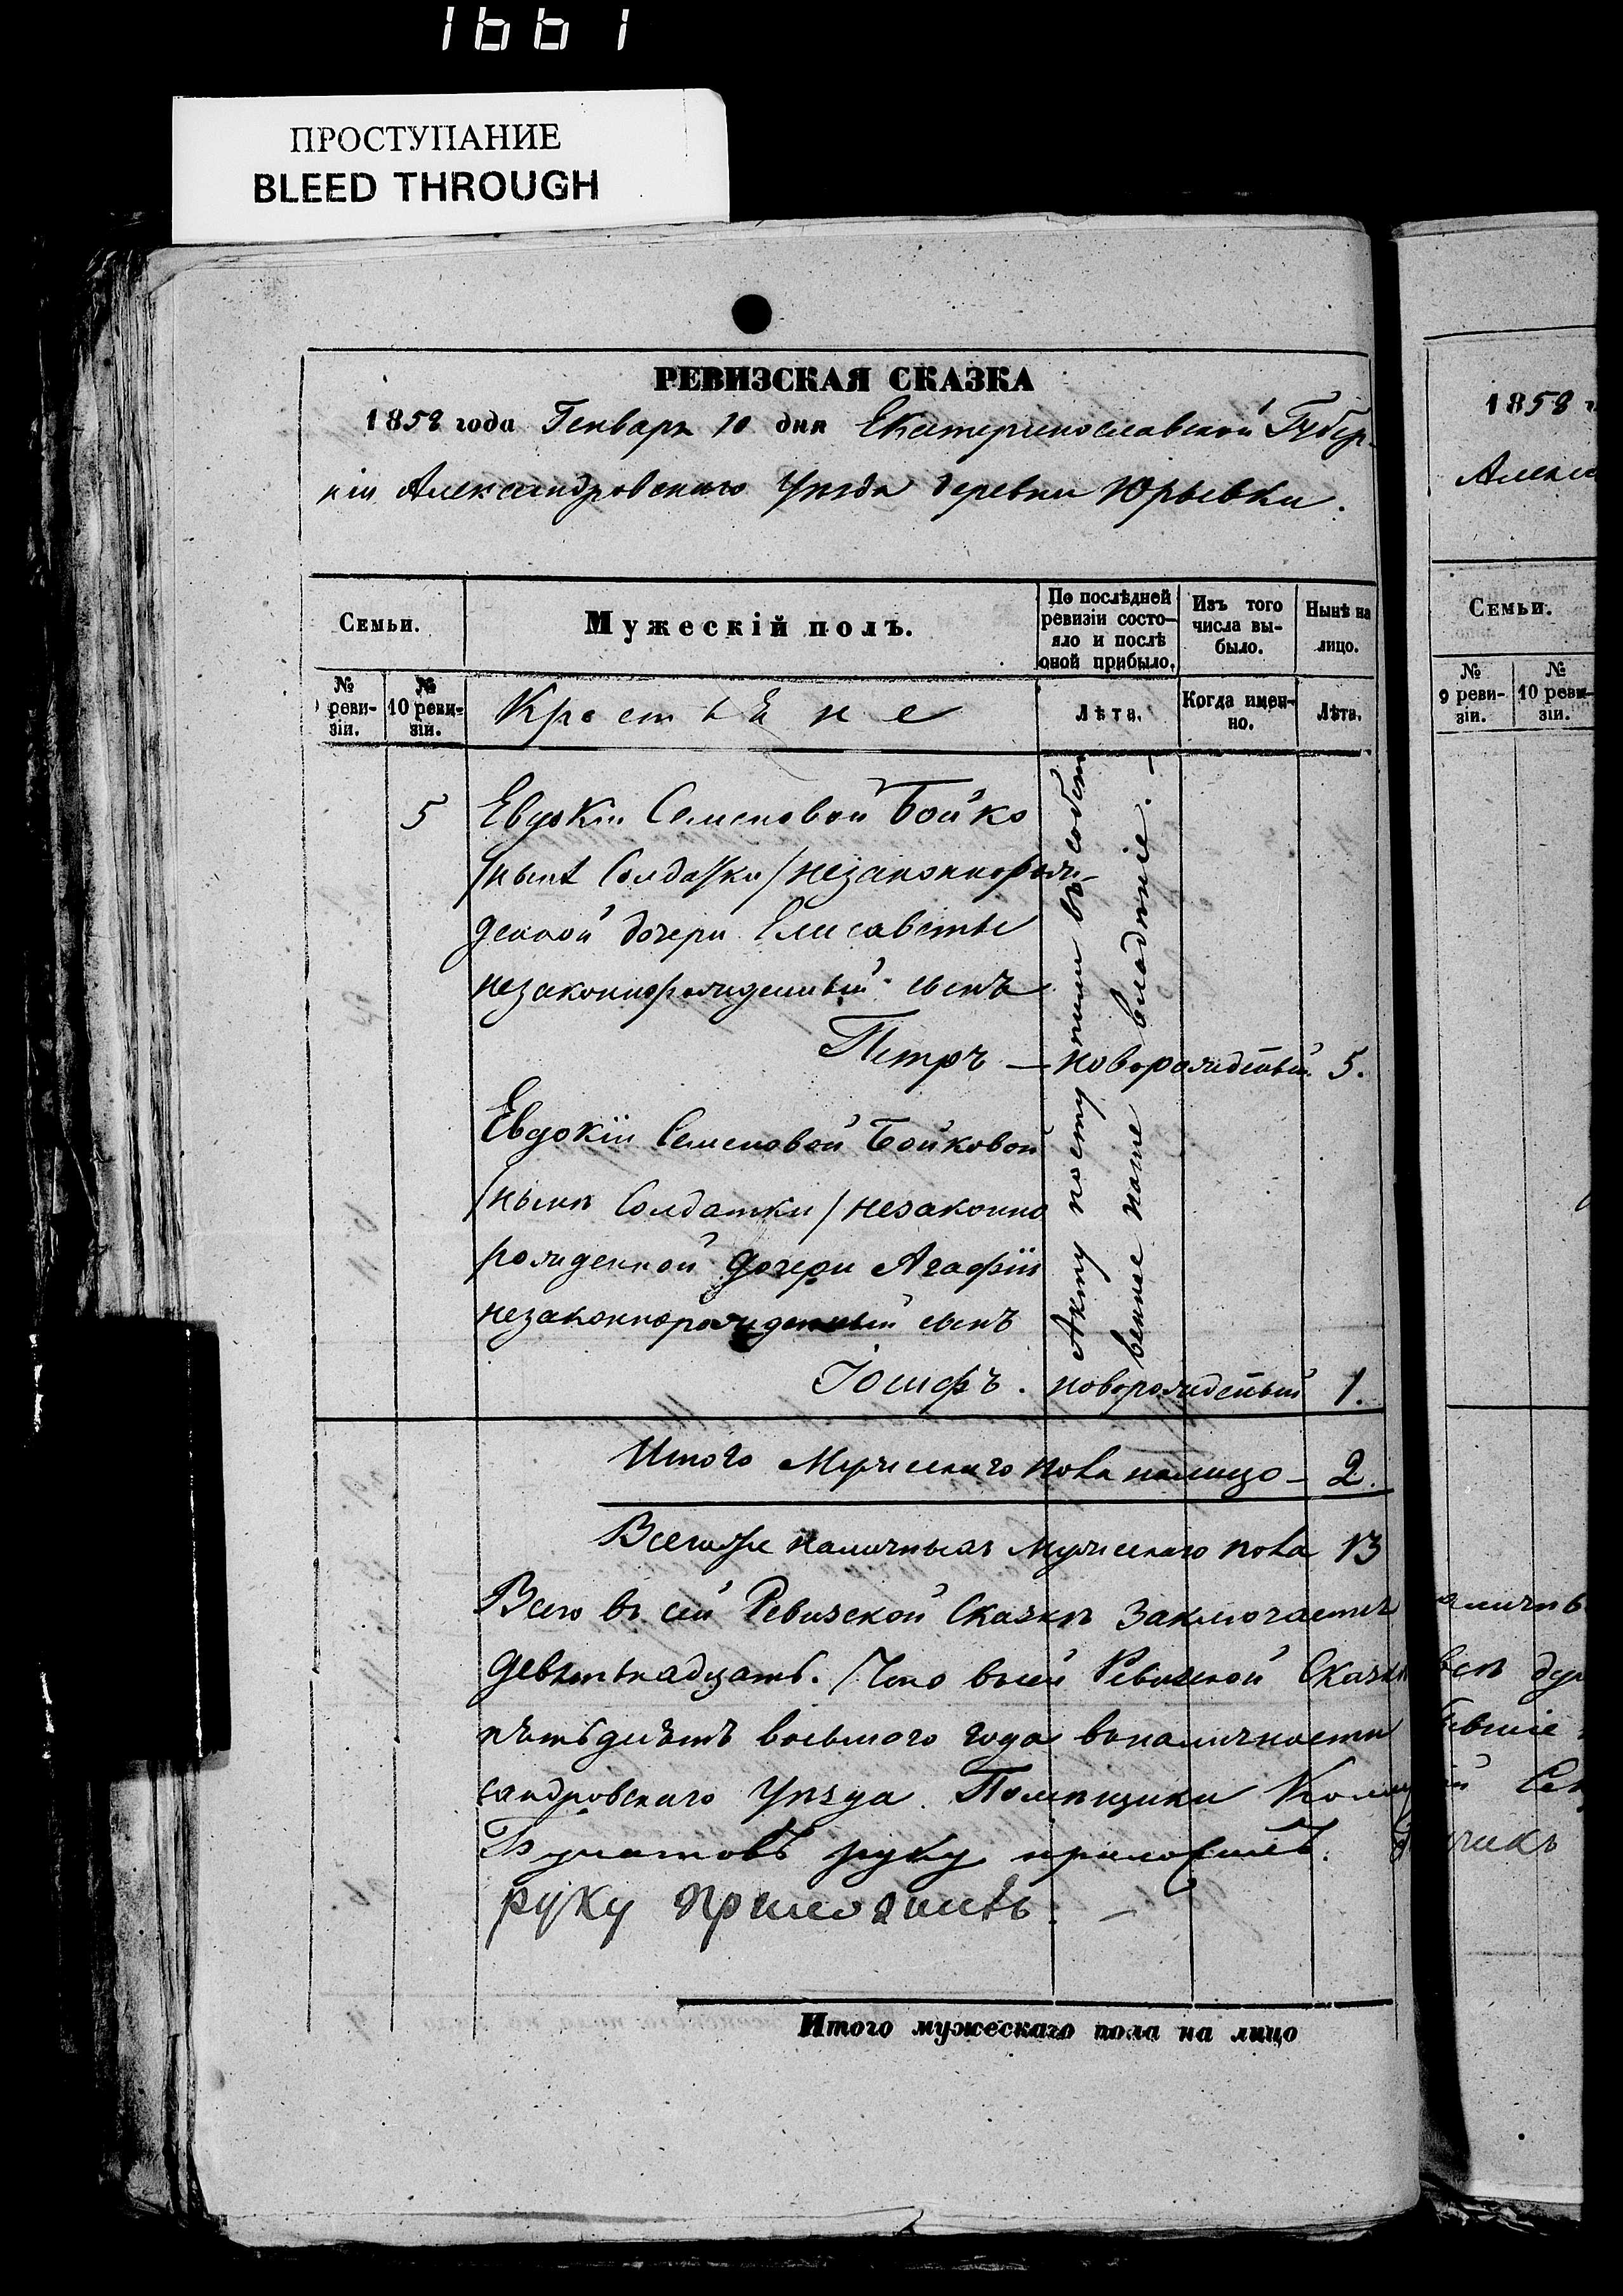 1661
ПРОСТУПАНИЕ
BLEED THROUGH
РЕВИЗСКАЯ СКАЗКА
1858 года Генваря 10 дня Екатеринославской Губер-
ніи Александровскаго Уѣзда деревни Юрьевки.
Семьи.
Мужескій полъ.
По послѣдней ревизіи состо-
яло и послѣ
оной прибыло.
Изъ того
числа вы-
было.
Нынѣ на
лицо.
№
ревизіи.
№
10 ревизіи.
Крестьяне
Лѣта.
Когда именно.
Лѣта.
5
Евдокіи Семеновой Бойко
/нынѣ Солдатки/ незаконнорож-
денной дочери Елисаветы
незаконнорожденный сынъ
Петръ — новорожденный 5.
Евдокіи Семеновой Бойковой
/нынѣ Солдатки/ незаконно
рожденной дочери Агафіи
незаконнорожденный сынъ
Іосифъ. новорожденный 1.
Акту поступили въ собст
венное наше владѣніе. —
Итого Мужескаго пола налицо — 2.
Всегоже наличныхъ Мужескаго пола 13
Всего въ сей Ревизской Сказкѣ заключается
девятьнадцать. Что въ сей Ревизской Сказкѣ
пятьдесятъ восьмого года въ наличности
сандровскаго Уѣзда Помѣщики
руку приложилъ.
руку приложилъ. —
Итого мужескаго пола на лицо
1858
Алекса
Семьи.
№
9 ревизіи.
№
10 ревизіи.